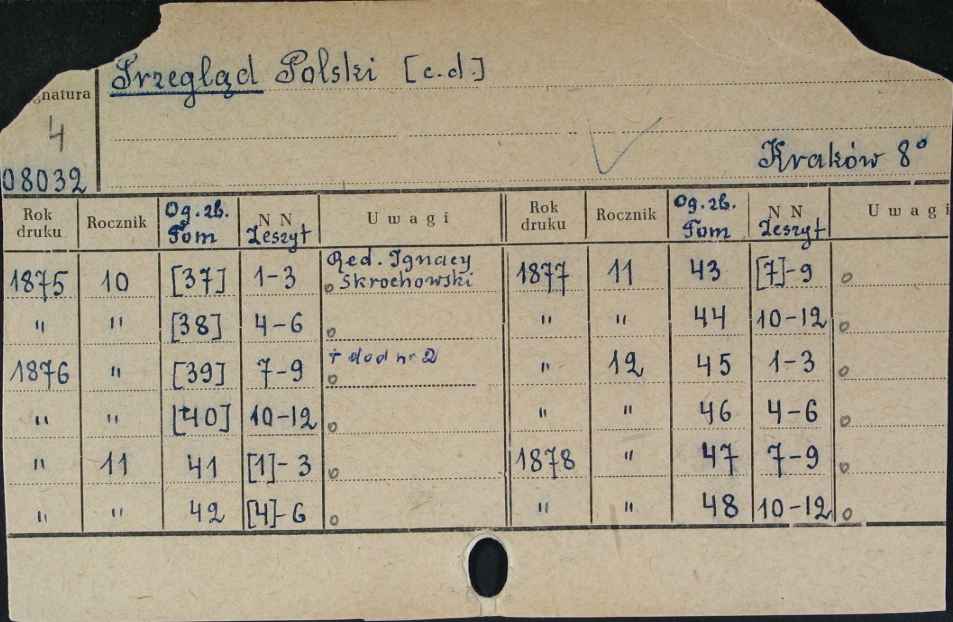 Przegląd Polski [c.d.]
gnatura
4
Kraków 8°
08032
Rok druku Rocznik Og. zb. Tom N N Zeszyt Uwagi Rok druku Rocznik Og. zb. Tom N N Zeszyt Uwagi
1875 10 [37] 1-3 Red. Ignacy Skrochowski 1877 11 43 [7]-9
" " [38] 4-6 " " 44 10-12
1876 " [39] 7-9 + dod nr 2 " 12 45 1-3
" " [40] 10-12 " " 46 4-6
" 11 41 [1]-3 1878 " 47 7-9
" " 42 [4]-6 " " 48 10-12